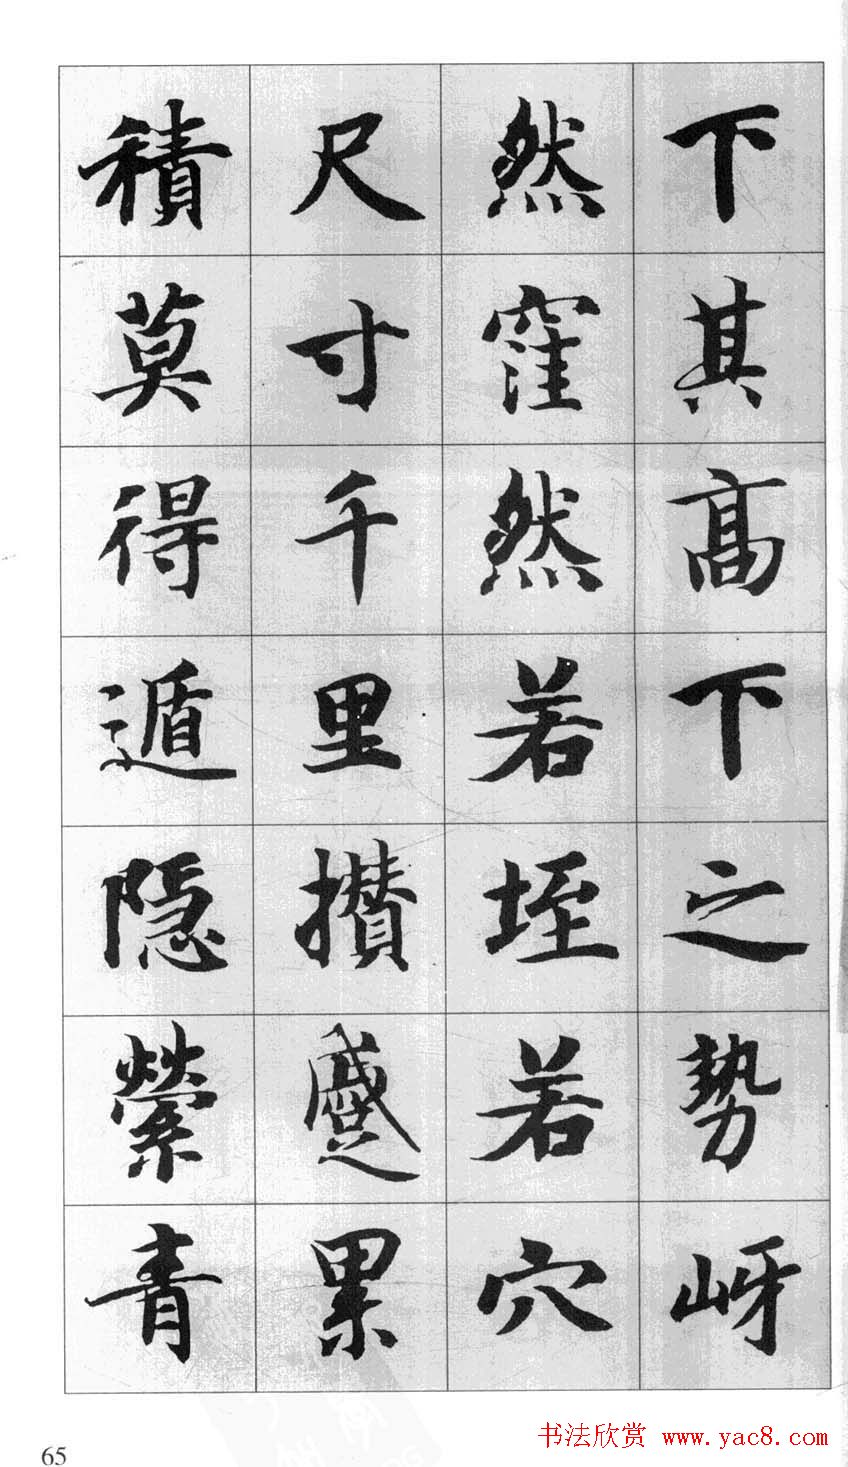 下其高下之勢岈
然窪然若垤若穴
尺寸千里攅蹙累
積莫得遁隠縈青
65
书法欣赏 www.yac8.com